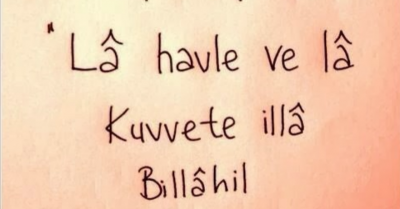 "Lâ havle ve lâ
Kuvvete illâ
Billâhil